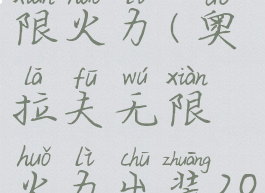 限火力(奥
lā fū wú xiàn
拉夫无限
huǒ lì chū zhuāng
火力出装20